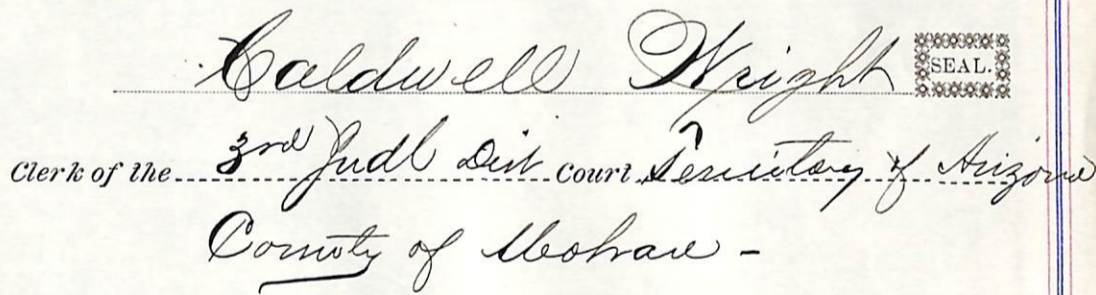 Caldwell Wright SEAL.
Clerk of the 3rd Judl Dist Court Territory of Arizona
County of Mohave -